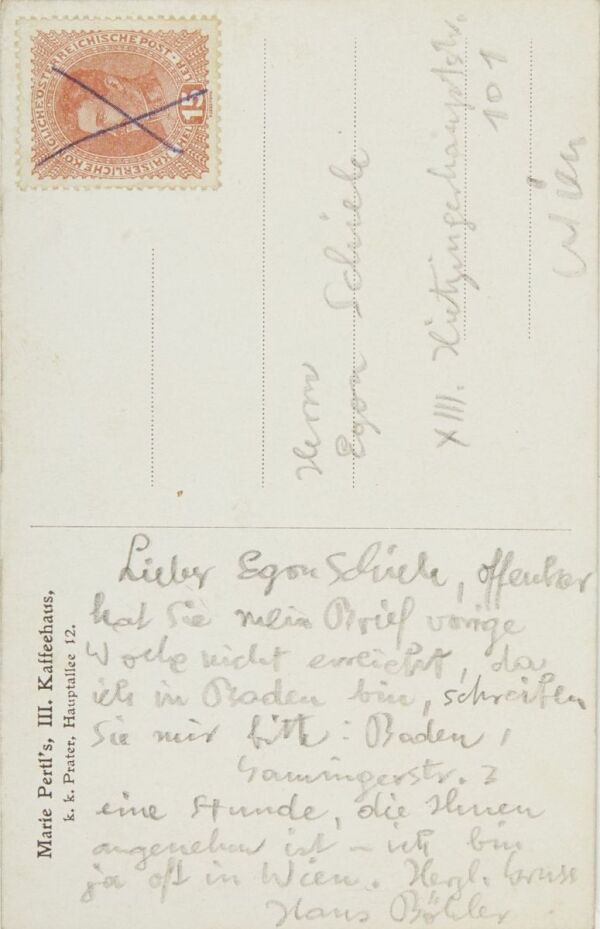 KAISERLICHE KÖNIGLICHE ÖSTERREICHISCHE POST
15
Herrn
Egon Schiele
XIII. Hietzingerhauptstr.
101
Wien
Marie Pertl's, III. Kaffeehaus,
k. k. Prater, Hauptallee 12.
Lieber Egon Schiele, offenbar
hat Sie mein Brief vorige
Woche nicht erreicht, da
ich in Baden bin, schreiben
Sie mir bitte: Baden,
eine Stunde, die Ihnen
angenehm ist – ich bin
ja oft in Wien. Herzl. Gruss
Hans Böhler